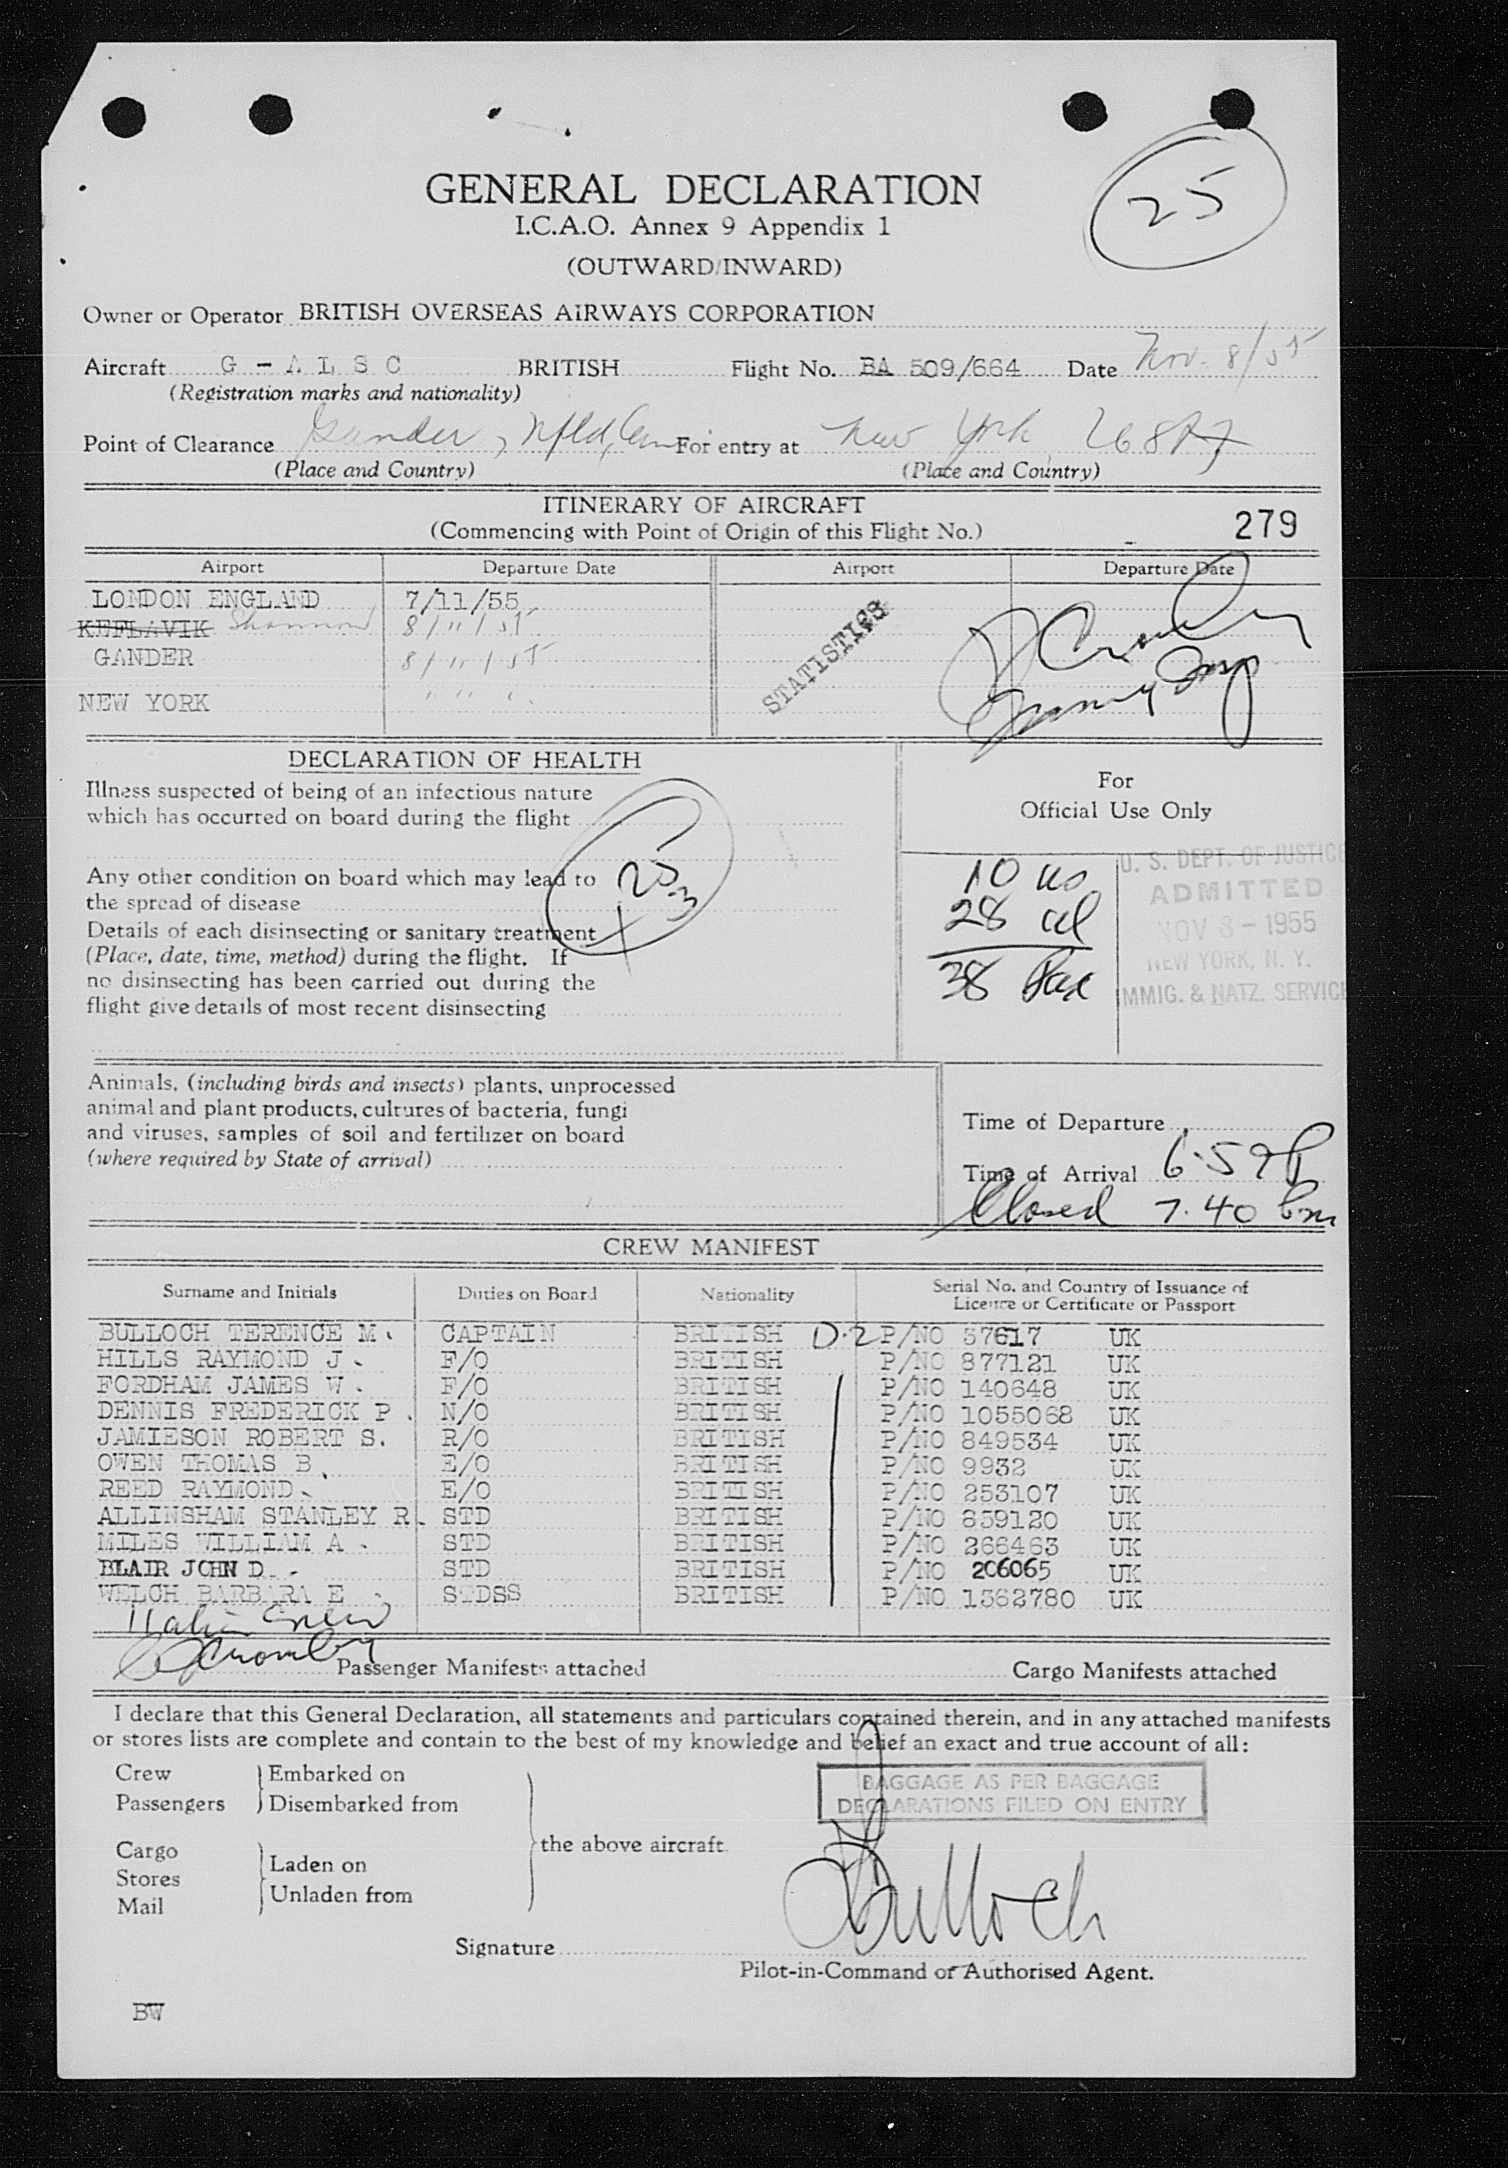 25
GENERAL DECLARATION
I.C.A.O. Annex 9 Appendix 1
(OUTWARD/INWARD)
Owner or Operator BRITISH OVERSEAS AIRWAYS CORPORATION
Aircraft G - A L S C BRITISH Flight No. BA 509/664 Date Nov. 8/55
(Registration marks and nationality)
Point of Clearance Gander, Nfld, Can For entry at New York
(Place and Country) (Place and Country)
ITINERARY OF AIRCRAFT
(Commencing with Point of Origin of this Flight No.) 279
Airport Departure Date Airport Departure Date
LONDON ENGLAND 7/11/55
KEFLAVIK Shannon 8/11/55
GANDER 8/11/55
NEW YORK " " "
STATISTICS
DECLARATION OF HEALTH
Illness suspected of being of an infectious nature
which has occurred on board during the flight
Any other condition on board which may lead to
the spread of disease
Details of each disinsecting or sanitary treatment
(Place, date, time, method) during the flight. If
no disinsecting has been carried out during the
flight give details of most recent disinsecting
25
For
Official Use Only
10 us
28 al
38 Pax
U. S. DEPT. OF JUSTICE
ADMITTED
NOV 8 - 1955
NEW YORK, N. Y.
IMMIG. & NATZ. SERVICE
Animals, (including birds and insects) plants, unprocessed
animal and plant products, cultures of bacteria, fungi
and viruses, samples of soil and fertilizer on board
(where required by State of arrival)
Time of Departure
Time of Arrival 6.59 P
Closed 7.40 Pm
CREW MANIFEST
Surname and Initials Duties on Board Nationality Serial No. and Country of Issuance of
Licence or Certificate or Passport
BULLOCH TERENCE M. CAPTAIN BRITISH D.2 P/NO 57617 UK
HILLS RAYMOND J. F/O BRITISH P/NO 877121 UK
FORDHAM JAMES W. F/O BRITISH P/NO 140648 UK
DENNIS FREDERICK P. N/O BRITISH P/NO 1055068 UK
JAMIESON ROBERT S. R/O BRITISH P/NO 849534 UK
OWEN THOMAS B. E/O BRITISH P/NO 9932 UK
REED RAYMOND. E/O BRITISH P/NO 253107 UK
ALLINSHAM STANLEY R. STD BRITISH P/NO 859120 UK
MILES WILLIAM A. STD BRITISH P/NO 266463 UK
BLAIR JOHN D. STD BRITISH P/NO 206065 UK
WELCH BARBARA E. STDSS BRITISH P/NO 1362780 UK
Passenger Manifests attached Cargo Manifests attached
I declare that this General Declaration, all statements and particulars contained therein, and in any attached manifests
or stores lists are complete and contain to the best of my knowledge and belief an exact and true account of all:
Crew Embarked on
Passengers Disembarked from
the above aircraft.
Cargo
Stores Laden on
Mail Unladen from
BAGGAGE AS PER BAGGAGE
DECLARATIONS FILED ON ENTRY
Bulloch
Signature
Pilot-in-Command or Authorised Agent.
BW